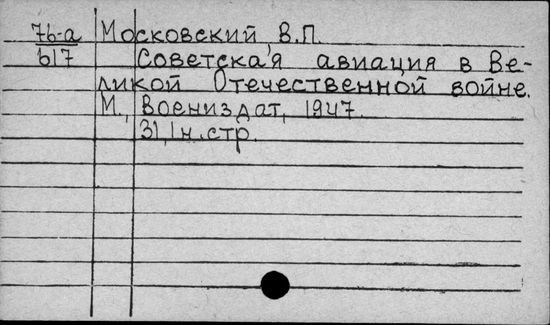 76-а Московский В.П.
617 Советская авиация в Ве-
ликой Отечественной войне.
М., Воениздат, 1947.
31, 1 н. стр.